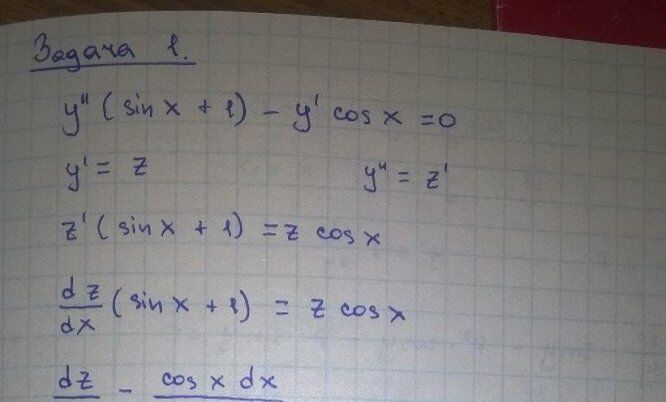 Задача 1.
y'' (sin x + 1) - y' cos x = 0
y' = z y'' = z'
z' (sin x + 1) = z cos x
dz/dx (sin x + 1) = z cos x
dz = cos x dx